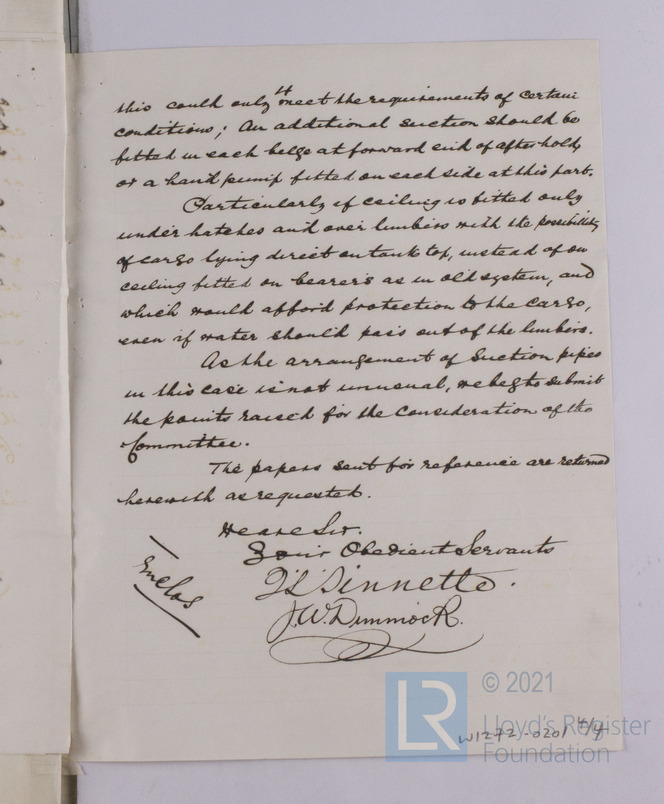 4
this could only meet the requirements of certain
conditions; An additional suction should be
fitted in each belge at forward end of after hold,
or a hand pump fitted on each side at this part.
Particularly if ceiling is fitted only
under hatches and over limbers with the possibility
of cargo lying direct on tank top, instead of on
ceiling fitted on bearers as in old system, and
which would afford protection to the cargo,
even if water should pass out of the limbers.
As the arrangement of Suction pipes
in this case is not unusual, we beg to submit
the points raised for the consideration of the
Committee.
The papers sent for reference are returned
herewith as requested.
We are Sir.
Your Obedient Servants
J.W. Dimmock.
Enclos
© 2021
LR
Lloyd's Register
Foundation
W1272-0201 4/4